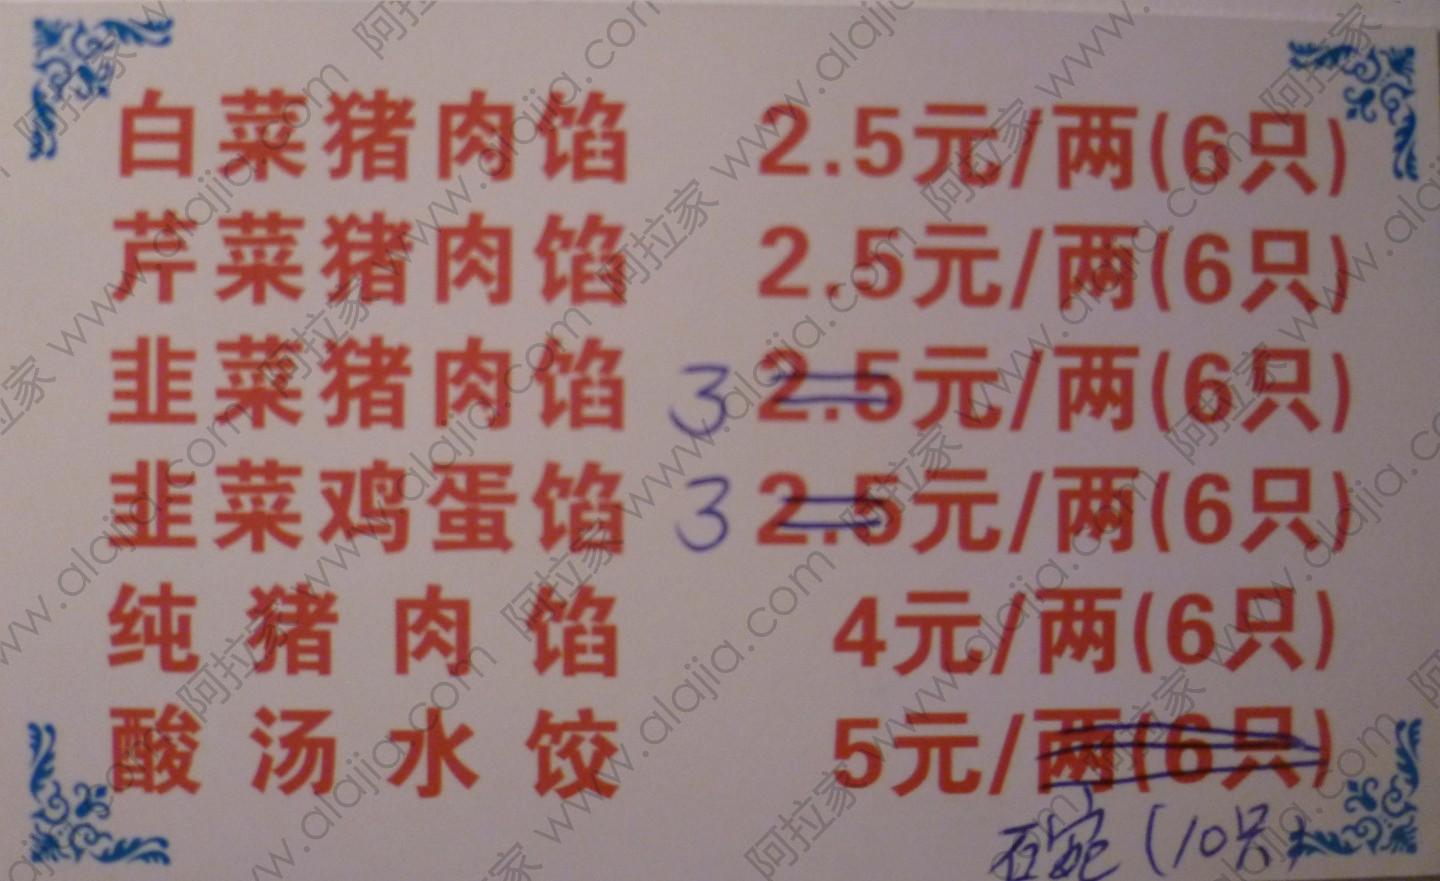 白菜猪肉馅 2.5元/两(6只)
芹菜猪肉馅 2.5元/两(6只)
韭菜猪肉馅 3 2.5元/两(6只)
韭菜鸡蛋馅 3 2.5元/两(6只)
纯猪肉馅 4元/两(6只)
酸汤水饺 5元/两(6只)
碗(10只)
阿拉家 www.alajia.com